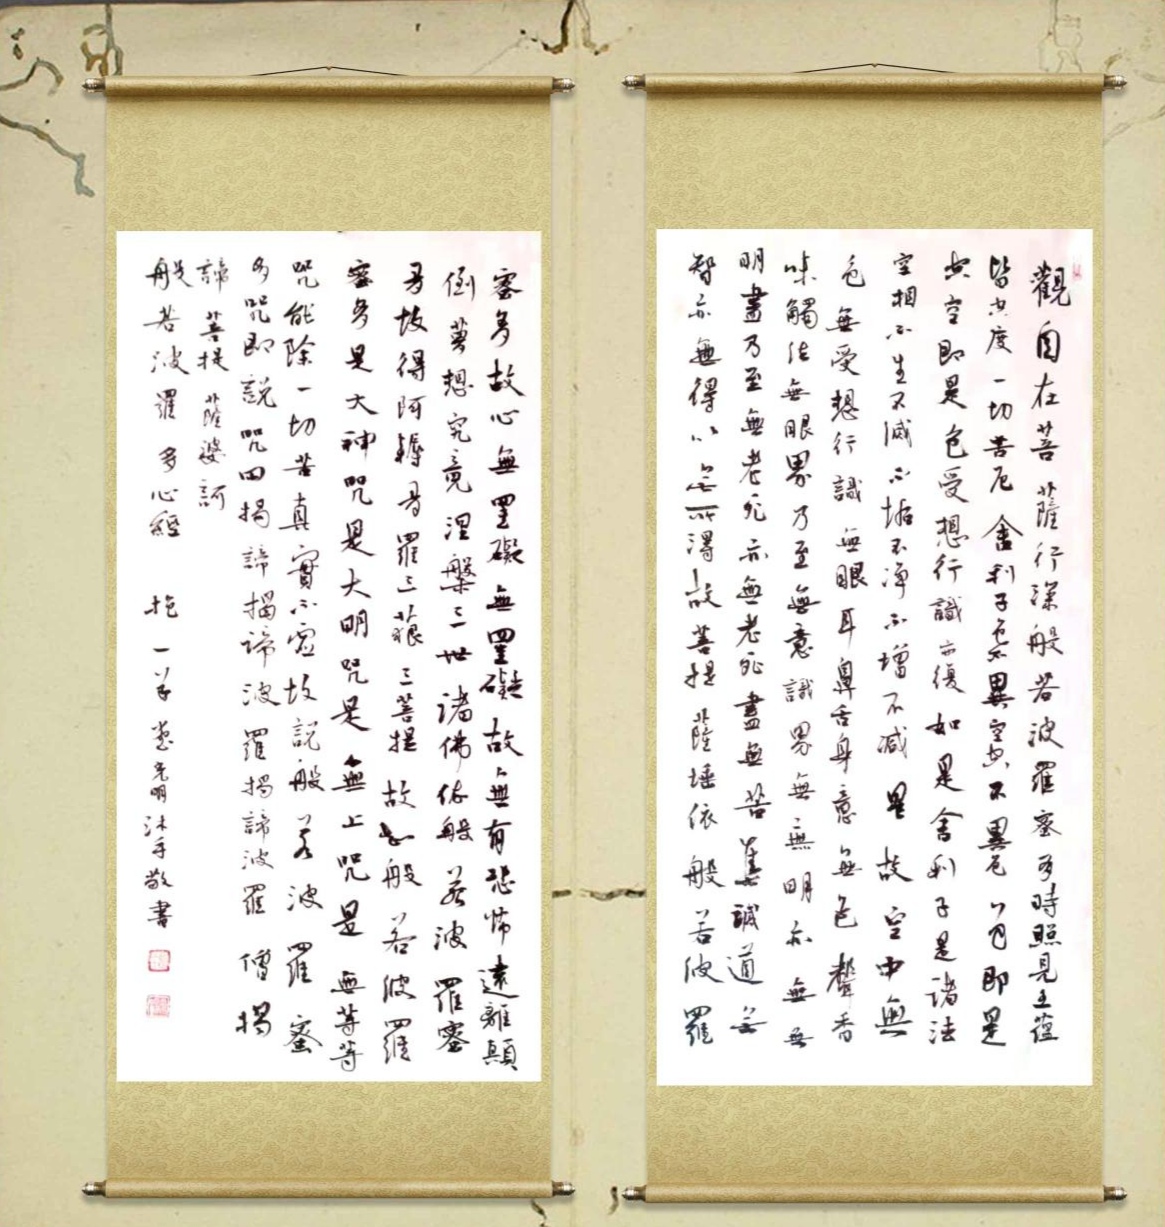 觀自在菩薩行深般若波羅蜜多時照見五蘊
皆空度一切苦厄舍利子色不異空空不異色色即是
空空即是色受想行識亦復如是舍利子是諸法
空相不生不滅不垢不淨不增不減是故空中無
色無受想行識無眼耳鼻舌身意無色聲香
味觸法無眼界乃至無意識界無無明亦無無
明盡乃至無老死亦無老死盡無苦集滅道無
智亦無得以無所得故菩提薩埵依般若波羅
蜜多故心無罣礙無罣礙故無有恐怖遠離顛
倒夢想究竟涅槃三世諸佛依般若波羅蜜
多故得阿耨多羅三藐三菩提故知般若波羅
蜜多是大神咒是大明咒是無上咒是無等等
咒能除一切苦真實不虛故說般若波羅蜜
多咒即說咒曰揭諦揭諦波羅揭諦波羅僧揭
諦菩提薩婆訶
般若波羅多心經 抱一 光明沐手敬書